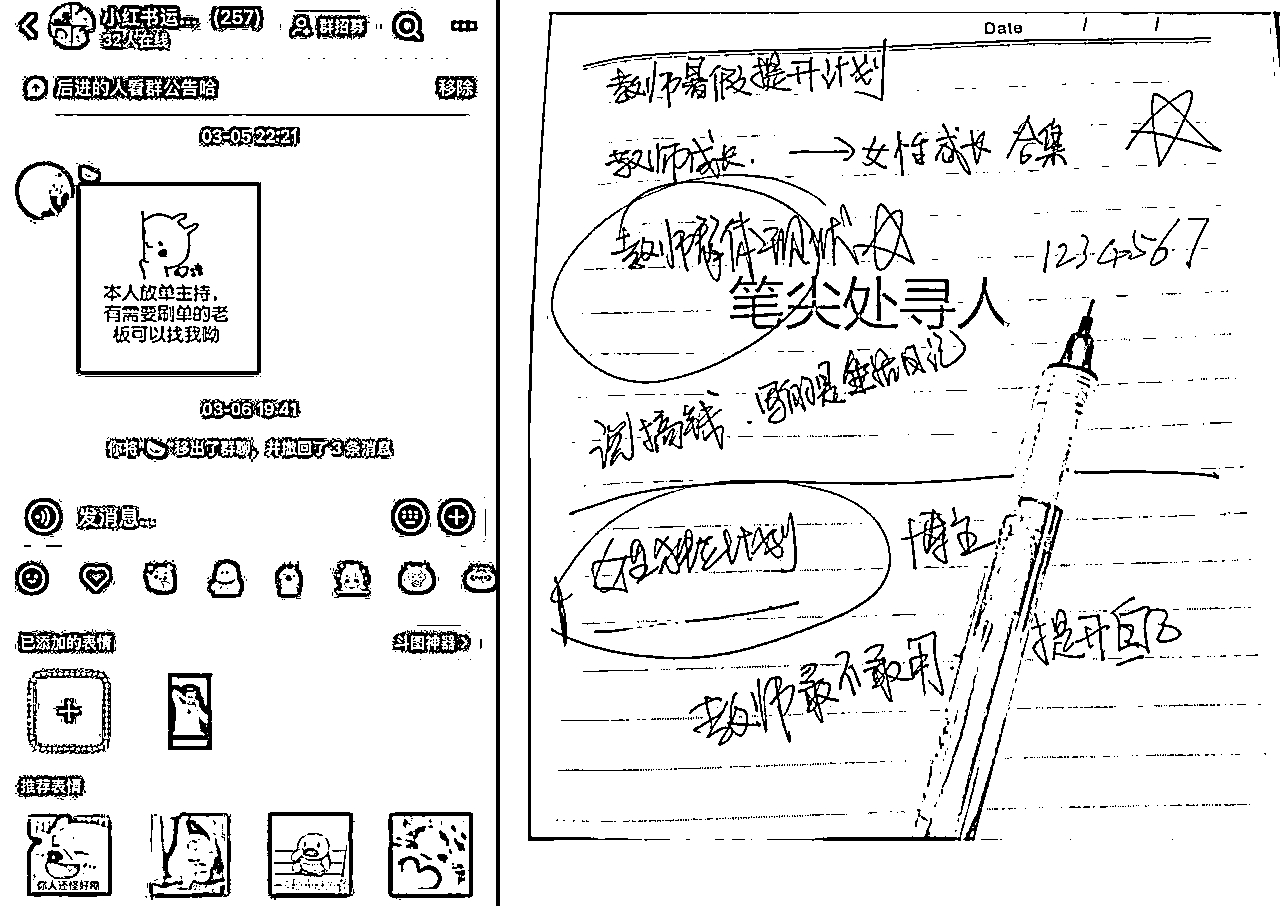 小红书运... (257)
32人在线
群招募
后进的人看群公告哈
移除
03-05 22:21
本人放单主持，
有需要刷单的老
板可以找我呦
03-06 19:41
你将 移出了群聊，并撤回了3条消息
发消息...
已添加的表情
斗图神器 >
推荐表情
你人还怪好嘞
Date / /
教师暑假提升计划
教师成长. → 女性成长 合集
教师群体现状
1234567
笔尖处寻人
别搞钱. 写的是生活日记
女性 计划
博主
提升自己
教师最不敢用